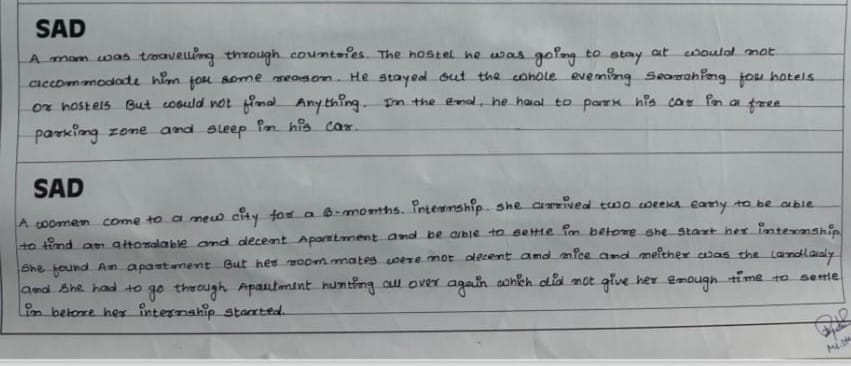 SAD
A man was travelling through countries. The hostel he was going to stay at would not
accommodate him for some reason. He stayed out the whole evening searching for hotels
or hostels But could not find Anything. In the end, he had to park his car in a free
parking zone and sleep in his car.
SAD
A women come to a new city for a 6-months. internship. she arrived two weeks early to be able
to find an affordable and decent Apartment and be able to settle in before she start her internship
She found An apartment But her room mates were not decent and nice and neither was the Landlady
and she had to go through Apartment hunting all over again which did not give her enough time to settle
in before her internship started.